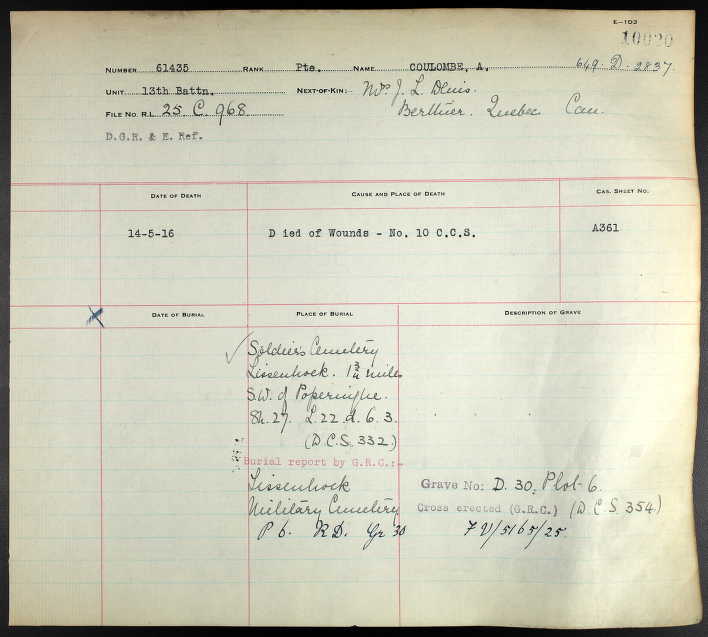 E—103
10020
NUMBER 61435 RANK Pte. NAME COULOMBE, A. 649. D. 2837.
UNIT 13th Battn. NEXT-OF-KIN: Mrs J. L. Denis.
FILE NO. R.L. 25 C. 968. Berthier. Quebec Can.
D.G.R. & E. Ref.
DATE OF DEATH CAUSE AND PLACE OF DEATH CAS. SHEET NO.
14-5-16 D ied of Wounds - No. 10 C.C.S. A361
DATE OF BURIAL PLACE OF BURIAL DESCRIPTION OF GRAVE
Soldier's Cemetery
Lissenhoek. 1¾ miles
S.W. of Poperinghe.
Sh. 27. L.22.d.6.3.
(D.C.S. 332.)
Burial report by G.R.C.:-
Lissenhoek Grave No: D. 30, Plot 6.
Military Cemetery Cross erected (G.R.C.) (D.C.S. 354)
P 6. R D. Gr 30